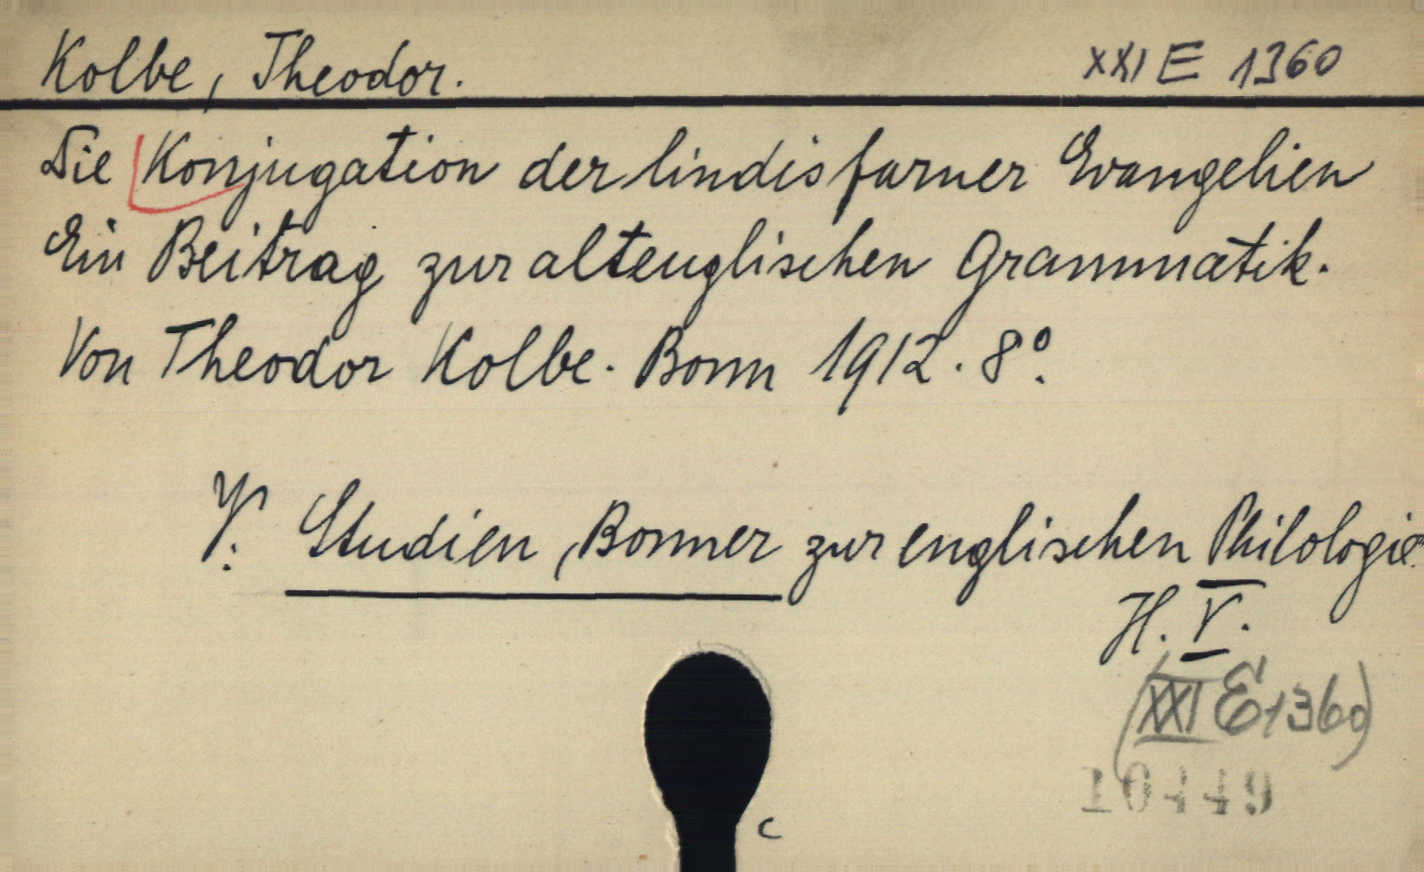 Kolbe, Theodor. XXI E 1360
Die Konjugation der lindisfarner Evangelien
Ein Beitrag zur altenglischen Grammatik.
Von Theodor Kolbe. Bonn 1912. 8°.
V. Studien, Bonner zur englischen Philologie.
H. V.
(XXI E 1360)
10449
c